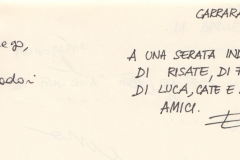 CARRARA
ego,
dori
A UNA SERATA
DI RISATE, DI
DI LUCA, CATE E
AMICI.